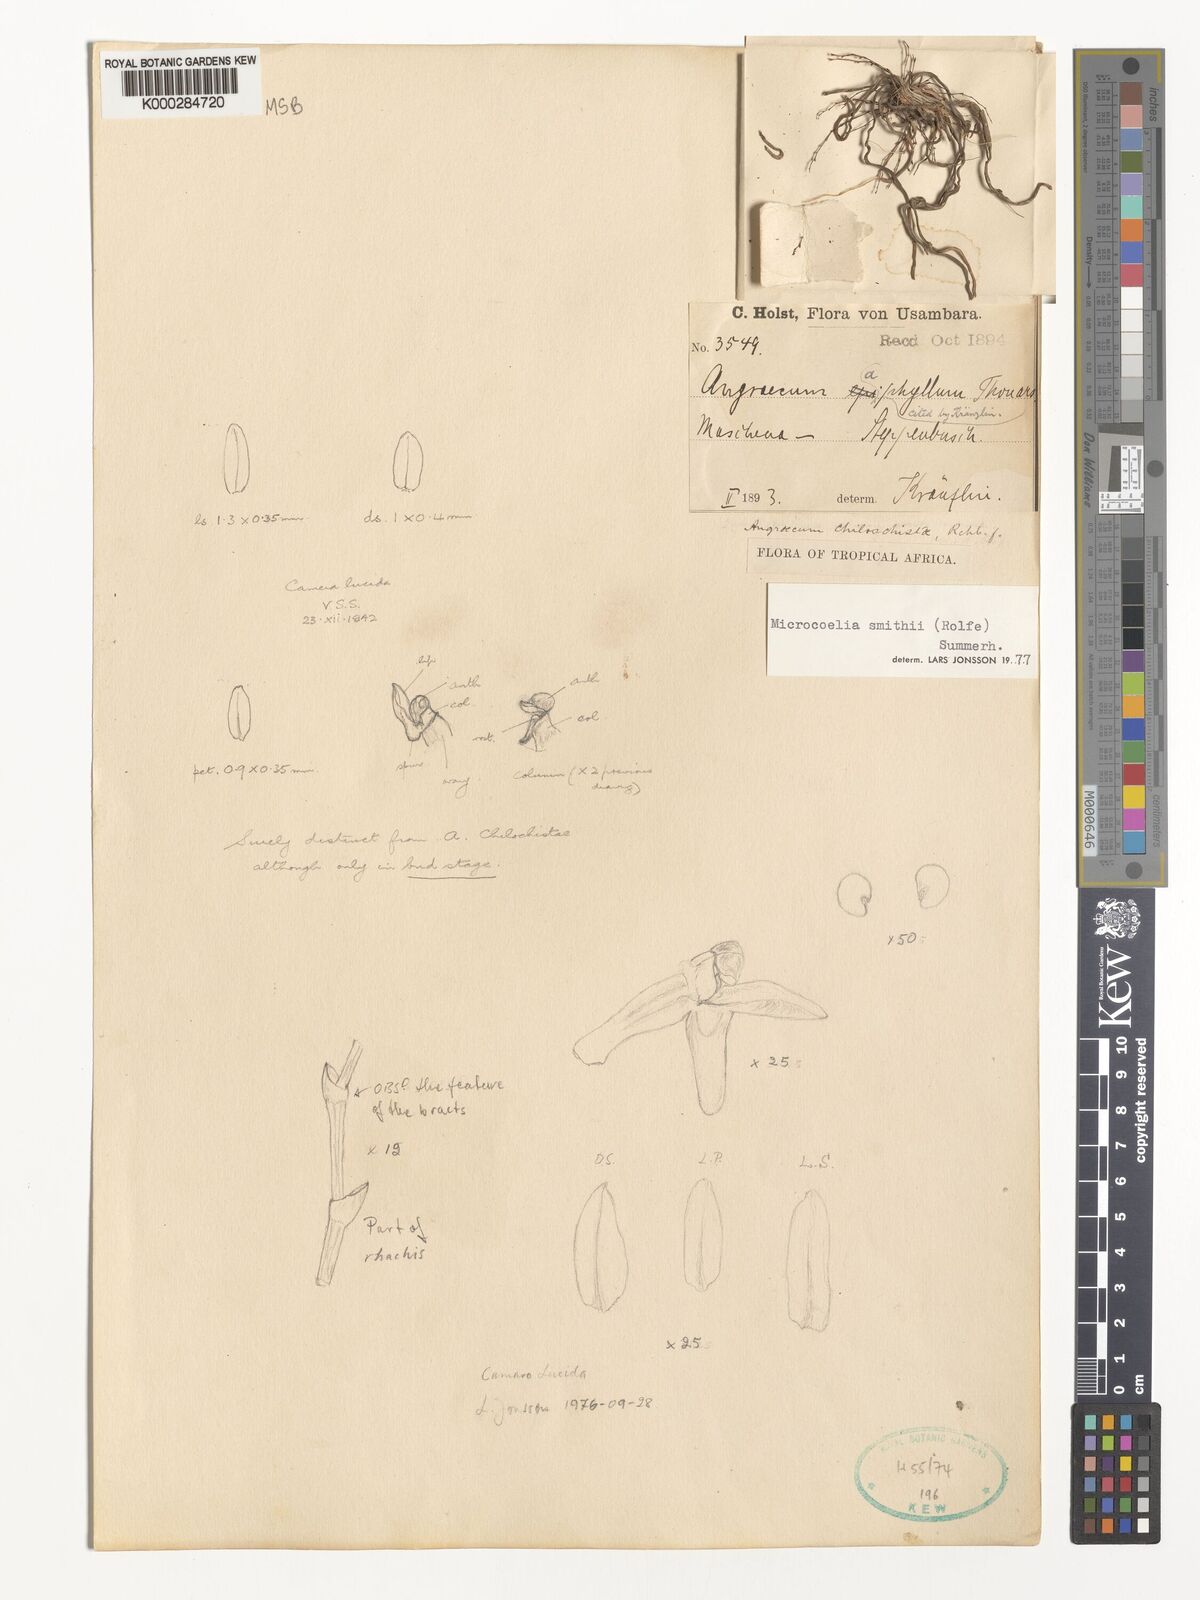 ROYAL BOTANIC GARDENS KEW
K000284720
MSB
C. Holst, Flora von Usambara.
No. 3549.
Recd Oct 1894
a
Angraecum epiphyllum Thouars
cited by Kränzlin.
Maschewa — Steppenbusch.
II 1893. determ. Kränzlin.
Angraecum chiloschistae, Rchb. f.
FLORA OF TROPICAL AFRICA.
Microcoelia smithii (Rolfe)
Summerh.
determ. LARS JONSSON 1977
ls. 1.3 x 0.35 mm.
ds. 1 x 0.4 mm
Camera lucida
V.S.S.
23.xii.1942
lip
anth
col.
spur
ovary
anth
rost.
col.
pet. 0.9 x 0.35 mm.
column (x 2 previous
drawing)
Surely distinct from A. Chiloschistae
although only in bud stage.
x 50
x 25
OBS! the feature
of the bracts
x 12
Part of
rhachis
D.S.
L.P.
L.S.
x 25
Camara Lucida
L. Jonsson 1976-09-28
ROYAL BOTANIC GARDENS
H55/74
196
KEW
inches
centimeters
Density
Don Williams
M000646
Royal Botanic Gardens
Kew
copyright reserved
0 1 2 3 4 5 6 7 8 9 10
cm